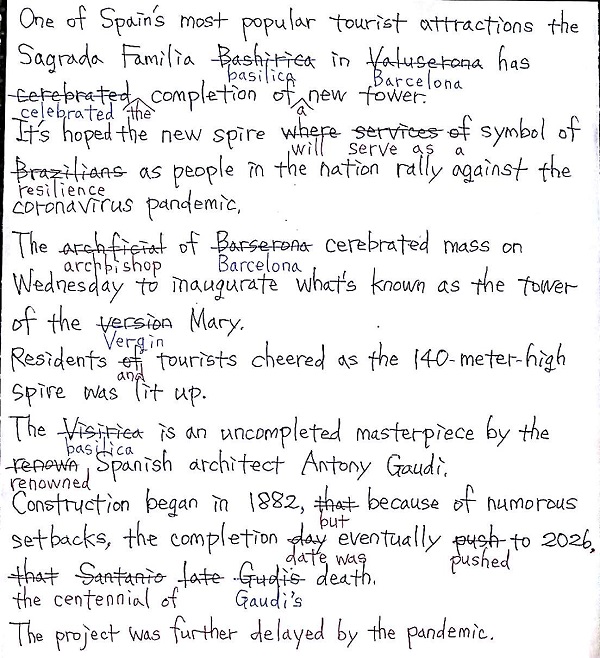 One of Spain's most popular tourist attractions the
Sagrada Familia Bashirica in Valuserona has
basilica Barcelona
cerebrated completion of new tower.
celebrated the a
It's hoped the new spire where services of symbol of
will serve as a
Brazilians as people in the nation rally against the
resilience
coronavirus pandemic.
The archficial of Barserona cerebrated mass on
archbishop Barcelona
Wednesday to inaugurate what's known as the tower
of the version Mary.
Vergin
Residents of tourists cheered as the 140-meter-high
and
spire was lit up.
The Visirica is an uncompleted masterpiece by the
basilica
renown Spanish architect Antony Gaudi.
renowned
Construction began in 1882, that because of numorous
but
setbacks, the completion day eventually push to 2026,
date was pushed
that Santanio fate Gudis death.
the centennial of Gaudi's
The project was further delayed by the pandemic.